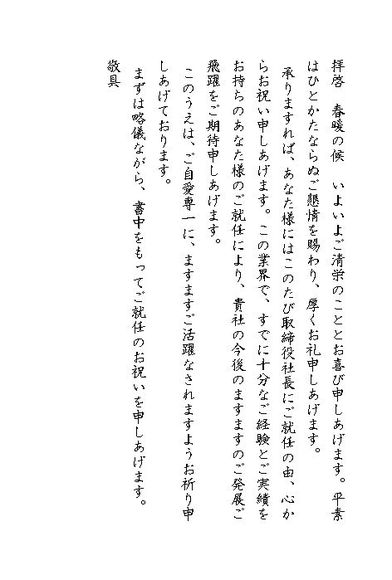 拝啓　春暖の候　いよいよご清栄のこととお喜び申しあげます。平素
はひとかたならぬご懇情を賜わり、厚くお礼申しあげます。
　承りますれば、あなた様にはこのたび取締役社長にご就任の由、心か
らお祝い申しあげます。この業界で、すでに十分なご経験とご実績を
お持ちのあなた様のご就任により、貴社の今後のますますのご発展ご
飛躍をご期待申しあげます。
　このうえは、ご自愛専一に、ますますご活躍なされますようお祈り申
しあげております。
　まずは略儀ながら、書中をもってご就任のお祝いを申しあげます。
敬具